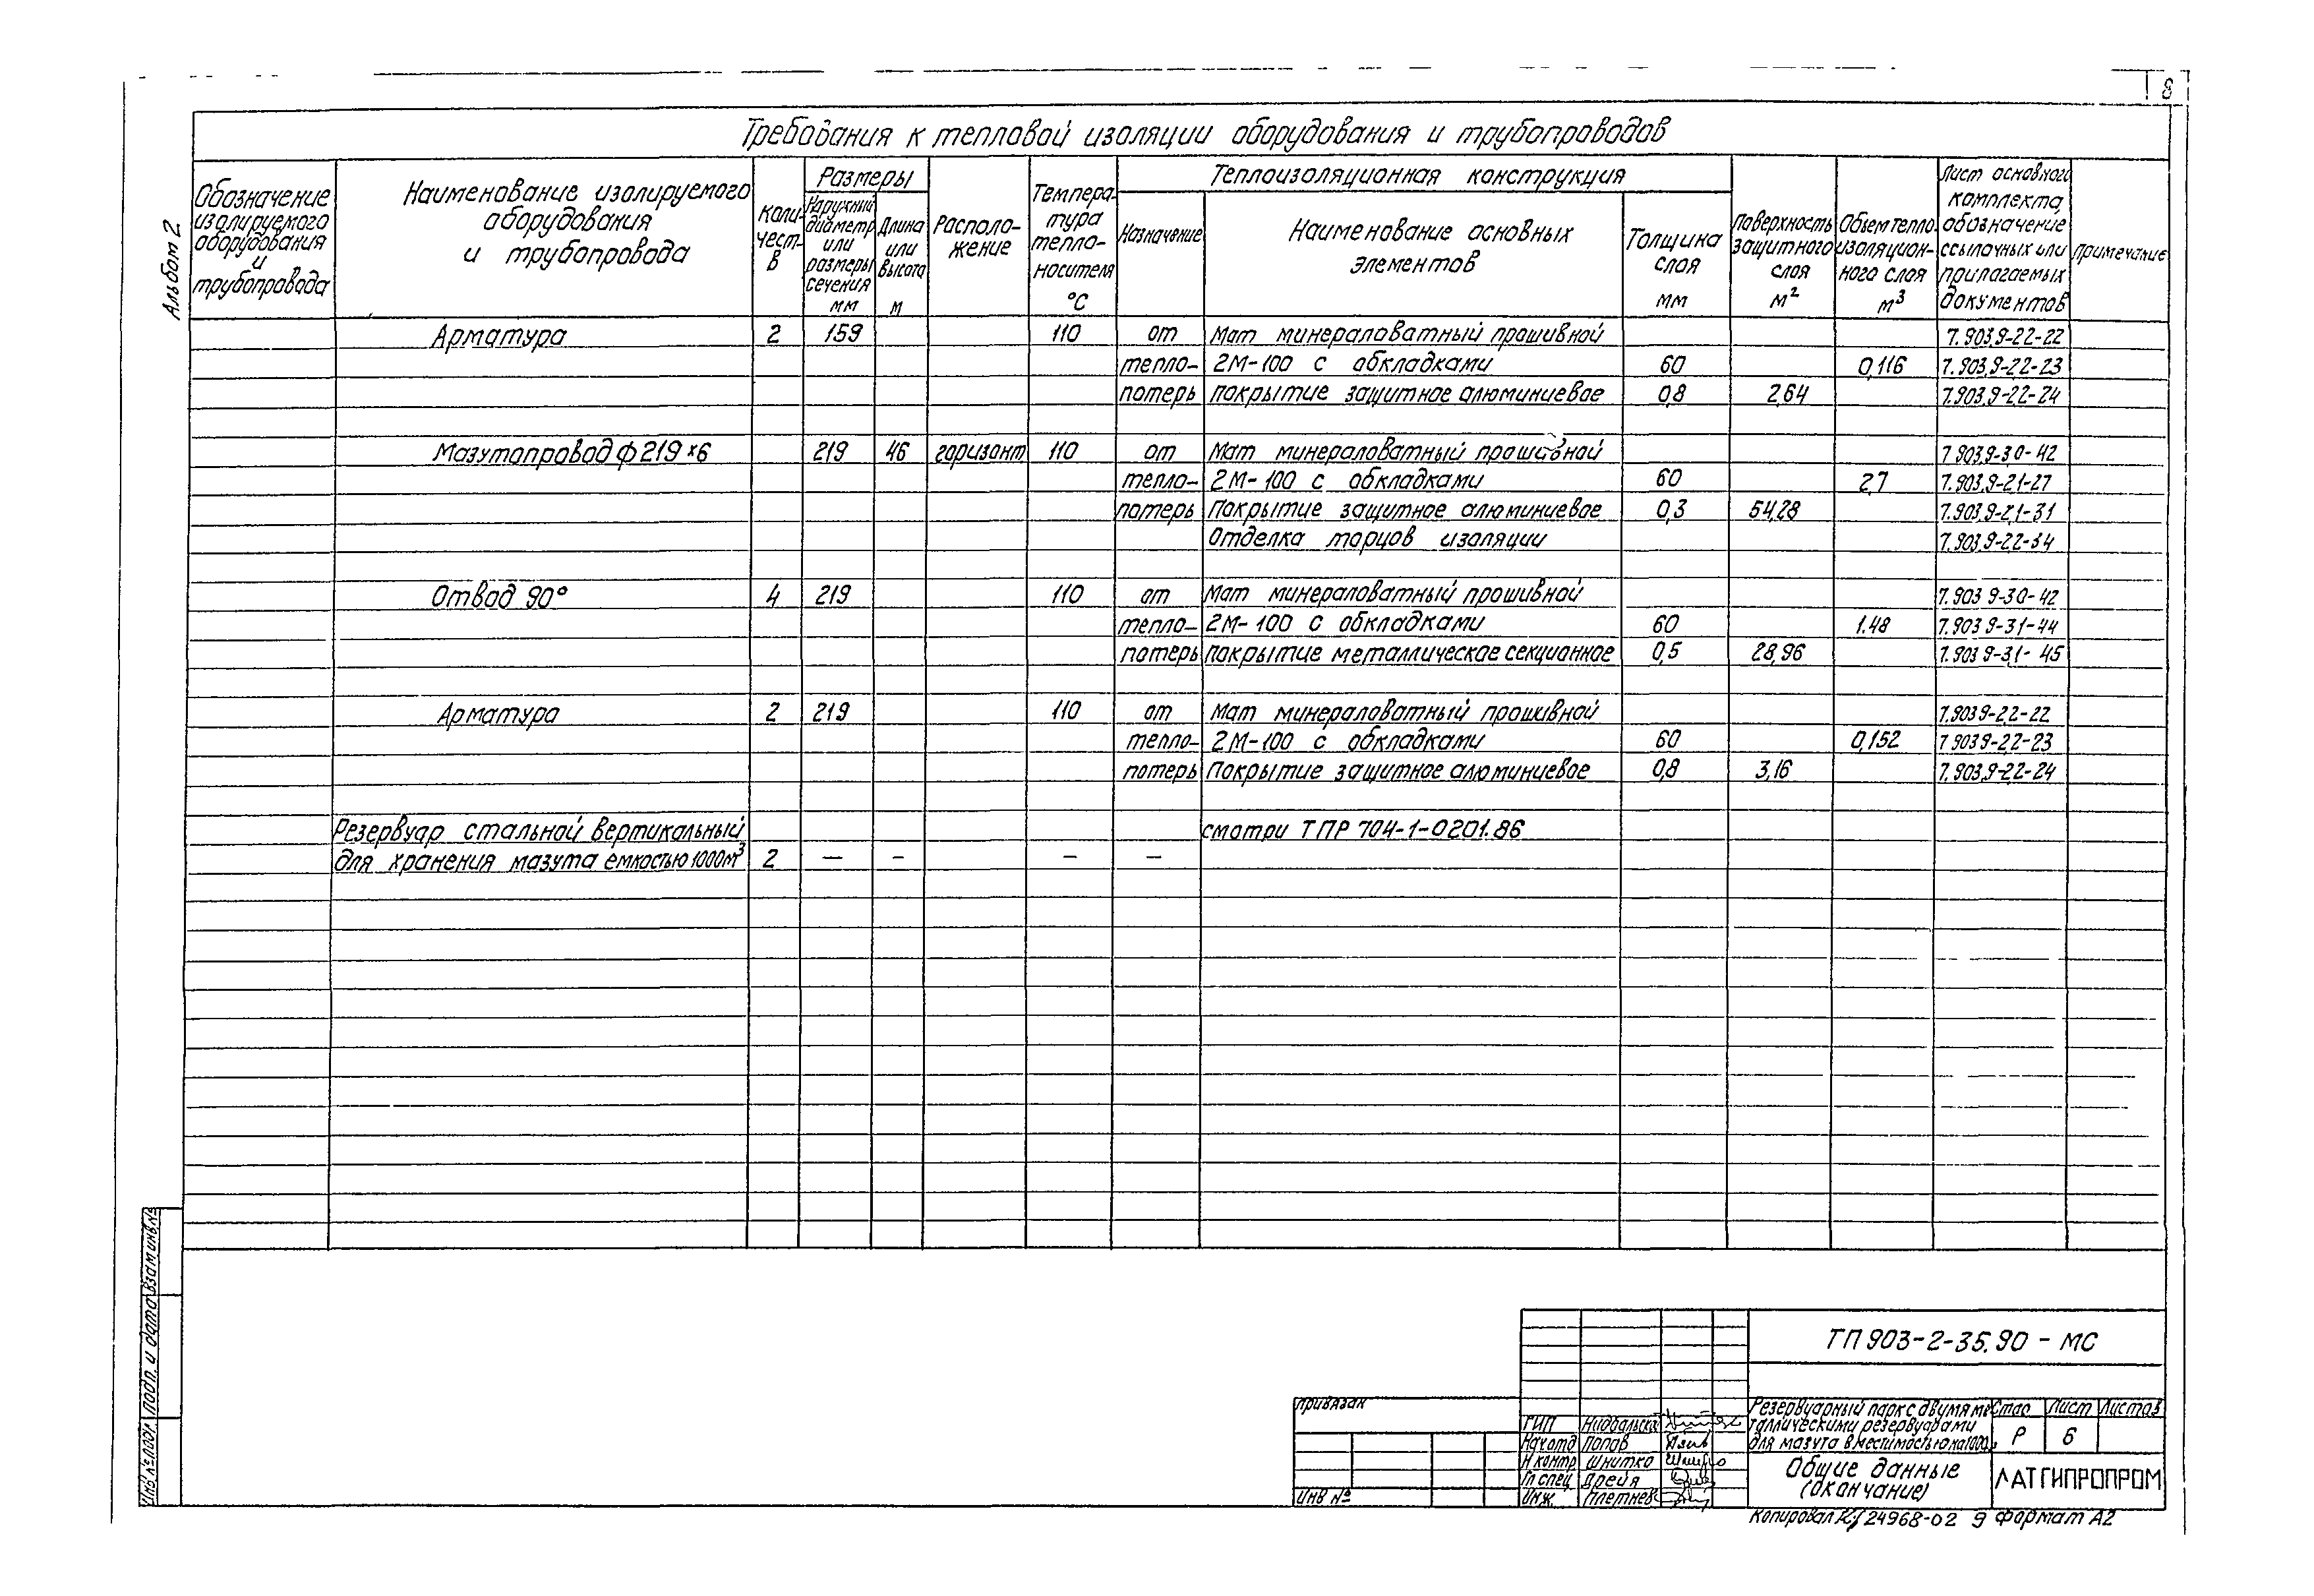 8
Альбом 2
Требования к тепловой изоляции оборудования и трубопроводов
Обозначение изолируемого оборудования и трубопровода
Наименование изолируемого оборудования и трубопровода
Коли-чест-в
Размеры
Наружный диаметр или размеры сечения мм
Длина или высота м
Располо-жение
Темпера-тура тепло-носителя °С
Теплоизоляционная конструкция
Назначение
Наименование основных элементов
Толщина слоя мм
Поверхность защитного слоя м²
Объем тепло изоляцион-ного слоя м³
Лист основного комплекта, обозначение ссылочных или прилагаемых документов
Примечание
Арматура 2 159 110 от Мат минераловатный прошивной 7.903,9-2,2-22
тепло- 2М-100 с обкладками 60 0,116 7.903,9-2,2-23
потерь покрытие защитное алюминиевое 0,8 2,64 7.903,9-2,2-24
Мазутопровод ф 219×6 219 46 горизонт 110 от Мат минераловатный прошивной 7.903,9-3,0-42
тепло- 2М-100 с обкладками 60 2,7 7.903,9-2,1-27
потерь Покрытие защитное алюминиевое 0,3 54,28 7.903,9-2,1-31
Отделка торцов изоляции 7.903,9-2,2-34
Отвод 90° 4 219 110 от Мат минераловатный прошивной 7.903 9-3,0-42
тепло- 2М-100 с обкладками 60 1.48 7.903 9-3,1-44
потерь покрытие металлическое секционное 0,5 28,96 7.903 9-3,1-45
Арматура 2 219 110 от Мат минераловатный прошивной 7.903 9-2,2-22
тепло- 2М-100 с обкладками 60 0,152 7 903 9-2,2-23
потерь Покрытие защитное алюминиевое 0,8 3,16 7.903,9-2,2-24
Резервуар стальной вертикальный смотри ТПР 704-1-0201.86
для хранения мазута емкостью 1000м³ 2 — – – –
Взам инв.№
Подп. и дата
Инв № подл.
ТП 903-2-35.90 - МС
Привязан
Инв №
ГИП
Нач отд Попов
Н контр Шнитко
Гл спец Дрейя
Инж. Плетнев
Резервуарный парк с двумя ме
таллическими резервуарами
для мазута вместимостью на 1000
Стас Лист Листов
Р 6
Общие данные
(окончание)
ЛАТГИПРОПРОМ
Копировал 24968-02 9 Формат А2